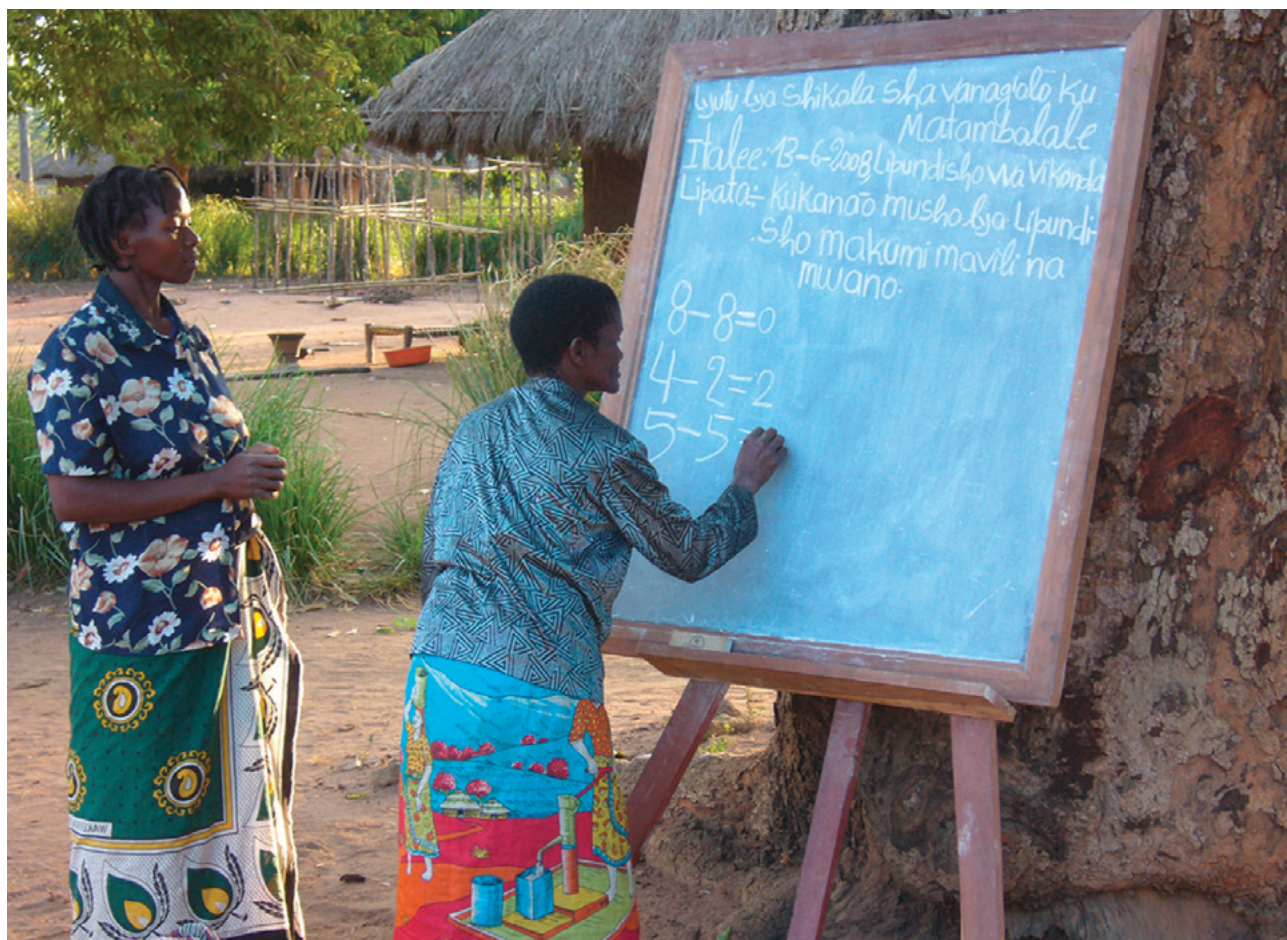 Lyutu lya Shikola sha vanagwolo Ku
Matambalale
Italee:- 13-6-2008 Lipundisho wa Vikonda
Lipata:- Kukanão musho lya Lipundi-
sho makumi mavili na
mwano.
8-8=0
4-2=2
5-5=